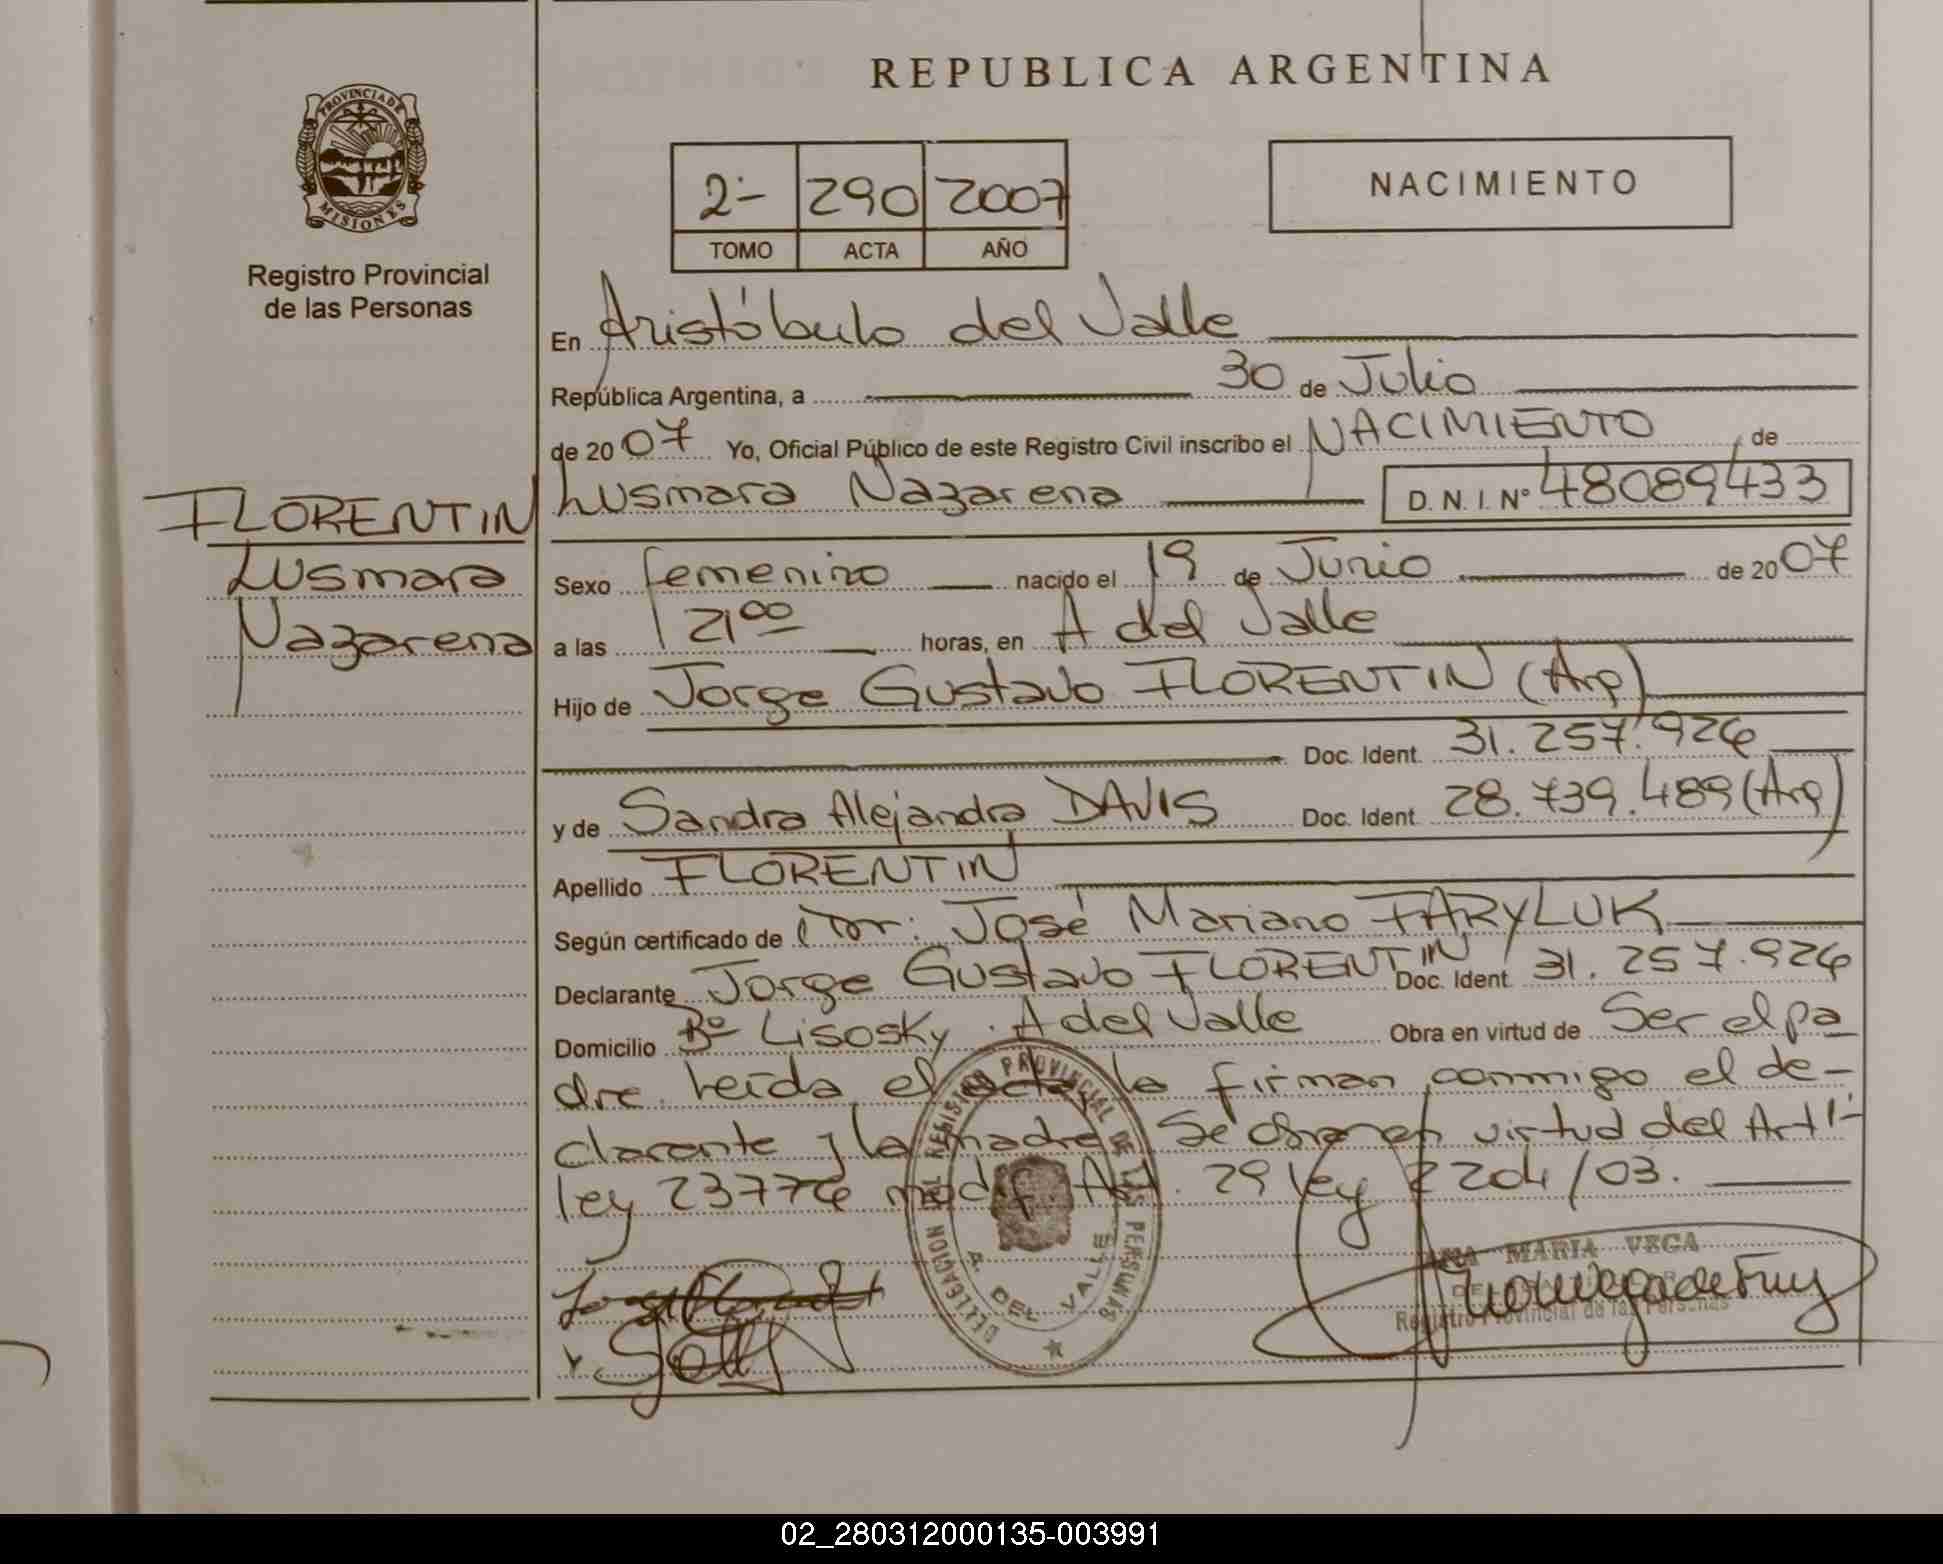 REPUBLICA ARGENTINA
PROVINCIA DE
MISIONES
Registro Provincial
de las Personas
2- 290 2007
TOMO ACTA AÑO
NACIMIENTO
En Aristóbulo del Valle
República Argentina, a 30 de Julio
de 2007 Yo, Oficial Público de este Registro Civil inscribo el NACIMIENTO de
Lusmara Nazarena D. N. I. Nº 48089433
FLORENTIN
Lusmara
Nazarena
Sexo femenino nacido el 19 de Junio de 2007
a las 21⁰⁰ horas, en A del Valle
Hijo de Jorge Gustavo FLORENTIN (Arg)
Doc. Ident. 31.257.926
y de Sandra Alejandra DAVIS Doc. Ident. 28.739.489 (Arg)
Apellido FLORENTIN
Según certificado de Dr: José Mariano FARYLUK
Declarante Jorge Gustavo FLORENTIN Doc. Ident. 31.257.926
Domicilio Bº Lisosky. A del Valle Obra en virtud de Ser el pa
dre. Leída el acta, la firman conmigo el de-
clarante y la madre. Se obra en virtud del Art 1-
ley 23776 modif. Art. 29 ley 2204/03.
DELEGACION DEL REGISTRO PROVINCIAL DE LAS PERSONAS
A. DEL VALLE
MARIA VEGA
Registro Provincial de las Personas
02_280312000135-003991